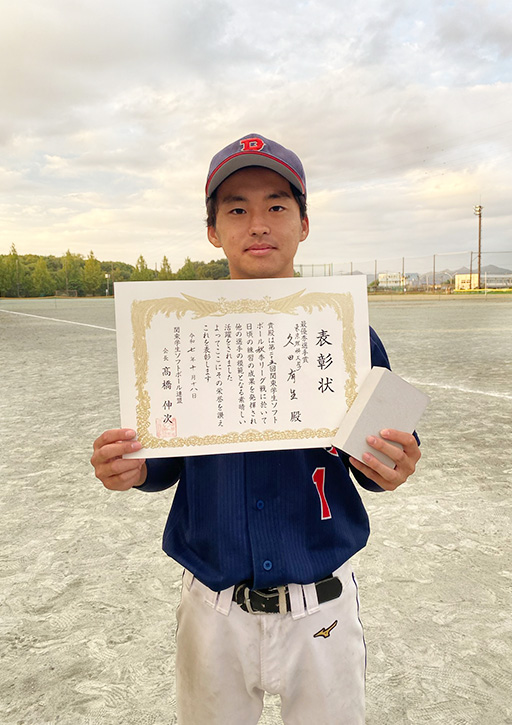 D
表彰状
最優秀選手賞
久田 殿
貴殿は第二五回関東学生ソフト
ボール秋季リーグ戦に於いて
日頃の練習の成果を発揮され
他の選手の模範となる素晴しい
活躍をされました
よってここにその栄誉を讃え
これを表彰します
令和七年十月十八日
関東学生ソフトボール連盟
会長 髙橋 伸次
1